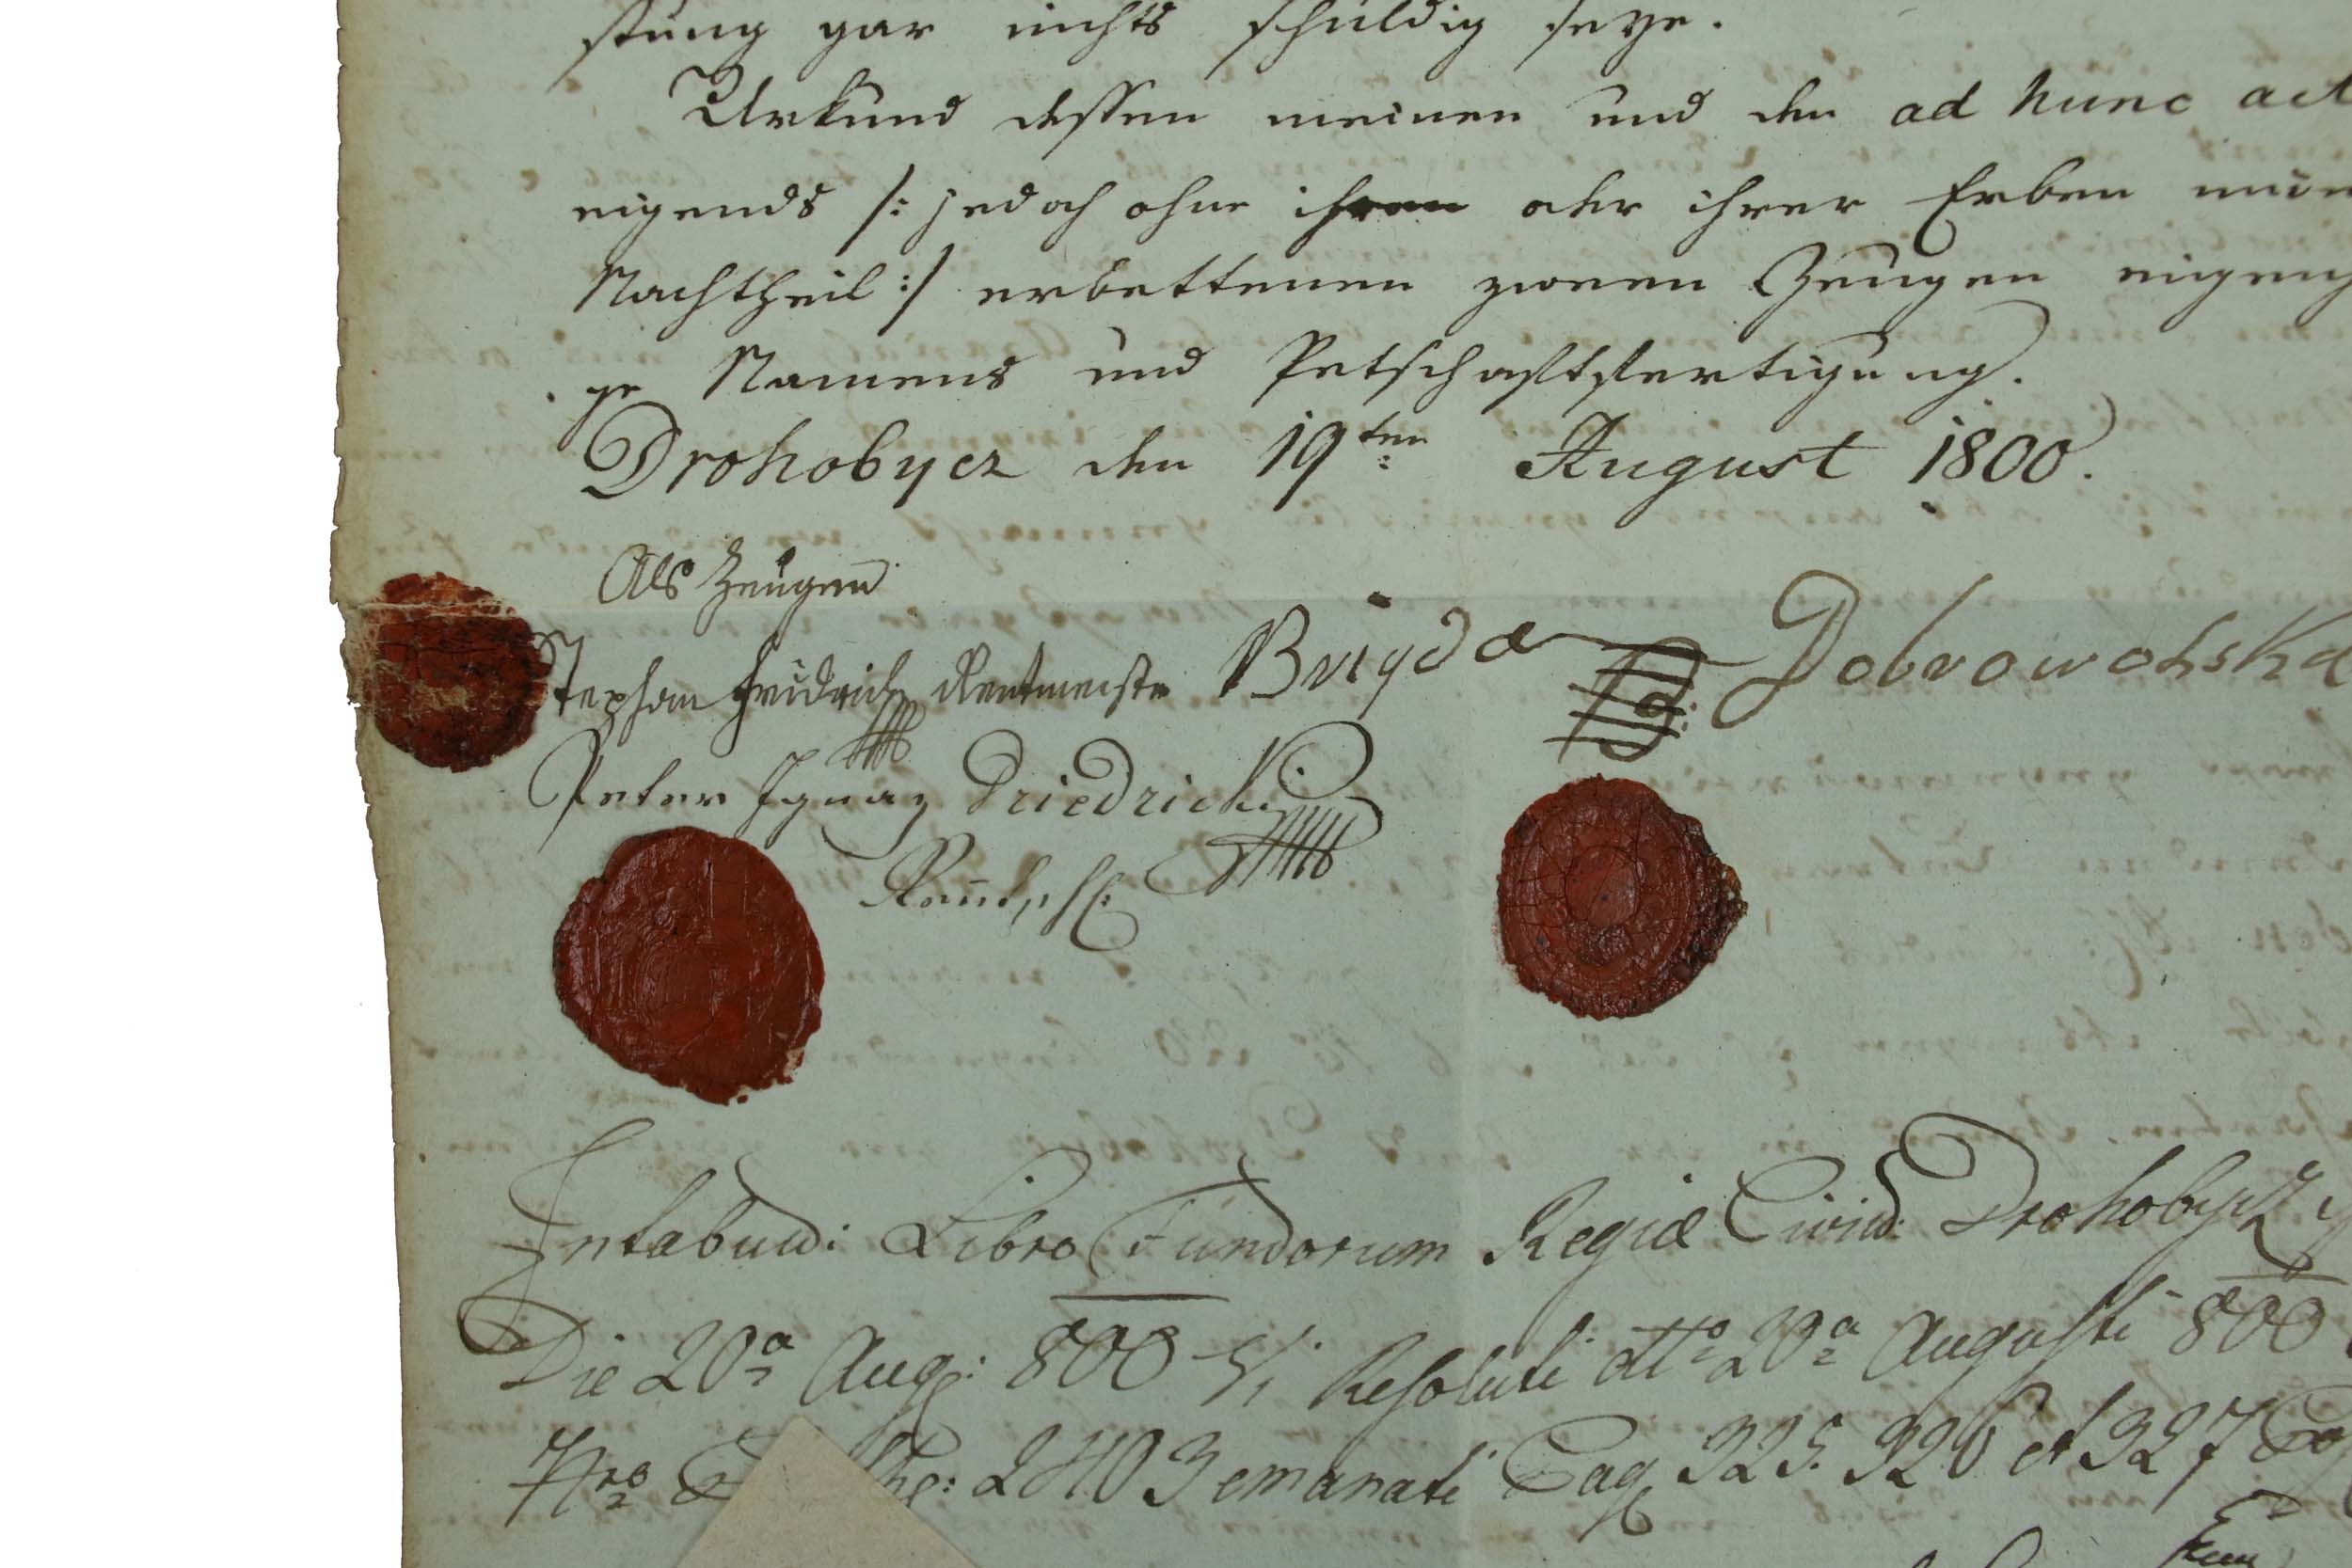 stung gar nichts schuldig seye.
Urkund dessen meinen und den ad hunc act
eigends /: jedoch ohne ihren oder ihrer Erben min
Nachtheil :/ erbettenen zween Zeugen eigenh
ge Namens und Petschaftsfertigung.
Drohobycz den 19ten August 1800.
Als Zeugen
Stephan Fridrich Rentmeister Brigda Dobrowolska
Peter Ignaz Driedzicki
Intabul: Libro Fundorum Regiæ Civit: Drohobycz
Die 20a Aug: 800 Resoluti dtto 20a Augusti 800
Nro 2403 emanati Pag 325. 326 et 327